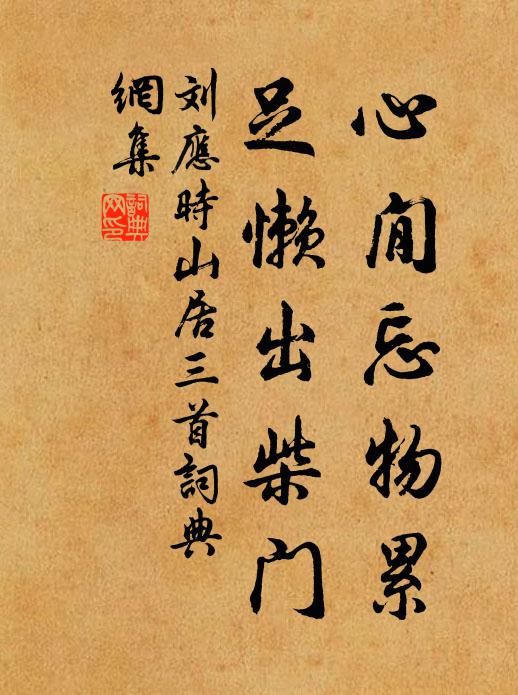 心闲忘物累
足懒出柴门
刘應時山居三首詞典
網集
詞典
网印